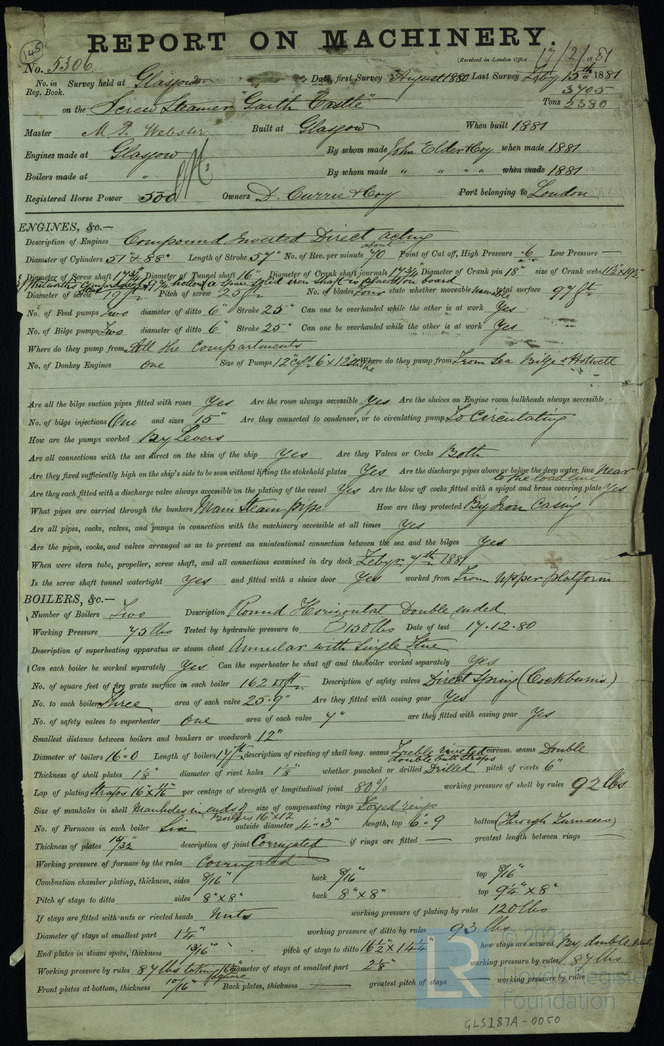 145
REPORT ON MACHINERY.
No. 5306 (Received in London Office 17/2/1881
No. in Survey held at Glasgow Date, first Survey August 1880 Last Survey Feby 15th 1881
Reg. Book. 3705
on the Screw Steamer "Garth Castle" Tons 2380
Master M. T. Webster Built at Glasgow When built 1881
Engines made at Glasgow By whom made John Elder & Coy when made 1881
Boilers made at " By whom made " " " when made 1881
Registered Horse Power 500 Owners D. Currie & Coy Port belonging to London
ENGINES, &c.—
Description of Engines Compound Inverted Direct Acting
Diameter of Cylinders 51" & 88" Length of Stroke 57" No. of Rev. per minute about 70 Point of Cut off, High Pressure .6 Low Pressure —
Diameter of Screw shaft 17 3/4" Diameter of Tunnel shaft 16" Diameter of Crank shaft journals 17 3/4 Diameter of Crank pin 18" size of Crank webs
Diameter of screw 19 ft. Pitch of screw 25 ft. No. of blades four state whether moveable total surface 97 ft.
No. of Feed pumps Two diameter of ditto 6" Stroke 25" Can one be overhauled while the other is at work Yes
No. of Bilge pumps Two diameter of ditto 6" Stroke 25" Can one be overhauled while the other is at work Yes
Where do they pump from All the Compartments
No. of Donkey Engines one Size of Pumps Where do they pump from From Sea Bilge & Hotwell
Are all the bilge suction pipes fitted with roses Yes Are the roses always accessible Yes Are the sluices on Engine room bulkheads always accessible
No. of bilge injections One and sizes 15" Are they connected to condenser, or to circulating pump To Circulating
How are the pumps worked By Levers
Are all connections with the sea direct on the skin of the ship Yes Are they Valves or Cocks Both
Are they fixed sufficiently high on the ship's side to be seen without lifting the stokehold plates Yes Are the discharge pipes above or below the deep water line Near to the load line
Are they each fitted with a discharge valve always accessible on the plating of the vessel Yes Are the blow off cocks fitted with a spigot and brass covering plate Yes
What pipes are carried through the bunkers Main Steam pipe How are they protected By Iron Casing
Are all pipes, cocks, valves, and pumps in connection with the machinery accessible at all times Yes
Are the pipes, cocks, and valves arranged so as to prevent an unintentional connection between the sea and the bilges Yes
When were stern tube, propeller, screw shaft, and all connections examined in dry dock Feby. 7th 1881
Is the screw shaft tunnel watertight Yes and fitted with a sluice door Yes worked from From Upper platform
BOILERS, &c.—
Number of Boilers Two Description Round Horizontal Double ended
Working Pressure 75 lbs Tested by hydraulic pressure to 150 lbs Date of test 17.12.80
Description of superheating apparatus or steam chest Annular with Single Flue
Can each boiler be worked separately Yes Can the superheater be shut off and the boiler worked separately Yes
No. of square feet of fire grate surface in each boiler 162 Description of safety valves Direct Spring (Cockburn's)
No. to each boiler Three area of each valve 25.9" Are they fitted with easing gear Yes
No. of safety valves to superheater one area of each valve 7" are they fitted with easing gear Yes
Smallest distance between boilers and bunkers or woodwork 12"
Diameter of boilers 16'.0 Length of boilers 17 ft description of riveting of shell long. seams Treble riveted double butt straps circum. seams Double
Thickness of shell plates 1 1/8" diameter of rivet holes 1 1/8" whether punched or drilled Drilled pitch of rivets 6"
Lap of plating Straps per centage of strength of longitudinal joint 80% working pressure of shell by rules 92 lbs
Size of manholes in shell Manholes in ends of Boilers 16"x12 size of compensating rings
No. of Furnaces in each boiler Six outside diameter 4'.3" length, top 6'.9 bottom (Through Furnaces)
Thickness of plates 15/32" description of joint Corrugated if rings are fitted — greatest length between rings —
Working pressure of furnace by the rules Corrugated
Combustion chamber plating, thickness, sides 8/16" back 8/16" top 8/16"
Pitch of stays to ditto sides 8"x8" back 8"x8" top 9 1/4"x8"
If stays are fitted with nuts or riveted heads Nuts working pressure of plating by rules 120 lbs
Diameter of stays at smallest part 1 1/4" working pressure of ditto by rules 93 lbs
End plates in steam space, thickness 13/16" pitch of stays to ditto 16 1/2"x14 1/4" how stays are secured By double nuts
Working pressure by rules 87 lbs diameter of stays at smallest part 2 1/8" working pressure by rules 87 lbs
Front plates at bottom, thickness 10/16" Back plates, thickness — greatest pitch of stays — working pressure by rules
LR © 2023 Lloyd's Register Foundation
GLS187A-0050